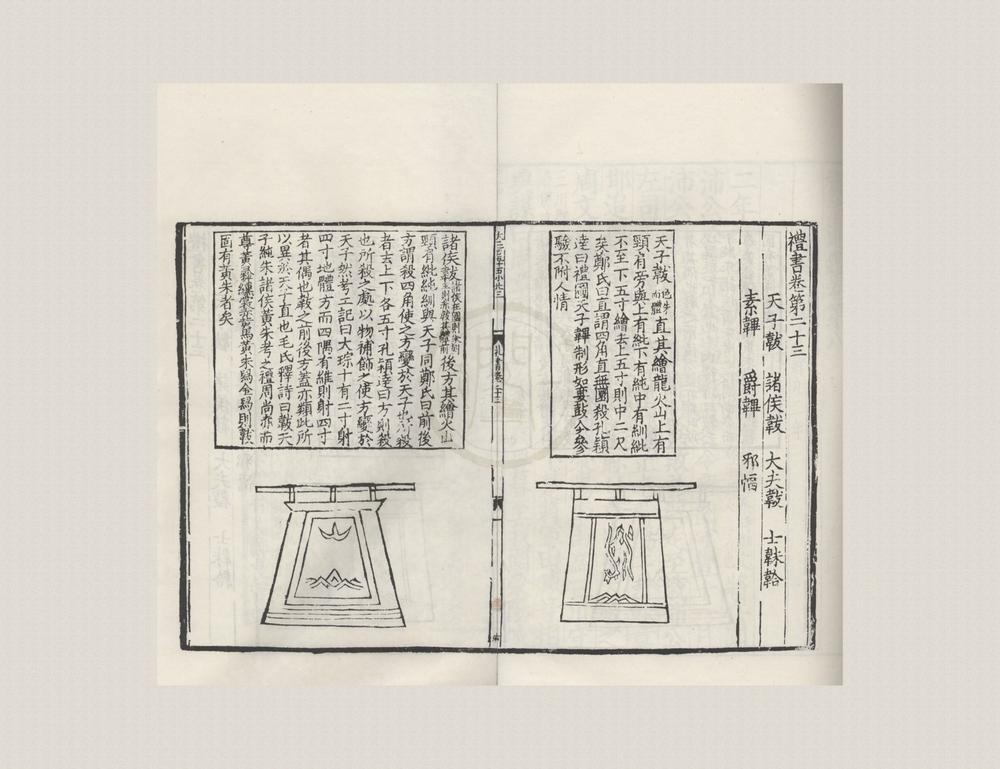 禮書卷第二十三
天子韍 諸侯韍 大夫韍 士韎韐
素韠 爵韠 邪幅
天子韍色朱而體直其繪龍火山上有
頸肩旁與上有紕下有純中有紃紕
不至下五寸繪去上五寸則中二尺
矣鄭氏曰直謂四角直無圜殺孔穎
達曰禮圖天子韠制形如要鼓今參
驗不附人情
禮書卷二十三
諸侯韍後方其繪火山
頸肩紕純紃與天子同鄭氏曰前後
方謂殺四角使之方變於天子也所殺
者去上下各五寸孔穎達曰方則殺
也所殺之處以物補飾之使方變於
天子然考工記曰大琮十有二寸射
四寸地體方而四隅有維則射四寸
者其隅也韍之前後方蓋亦類此所
以異於天子直也毛氏釋詩曰韍天
子純朱諸侯黃朱考之禮周尚赤而
尊黃纁裳為黃朱舄金舄則韍
固有黃朱者矣